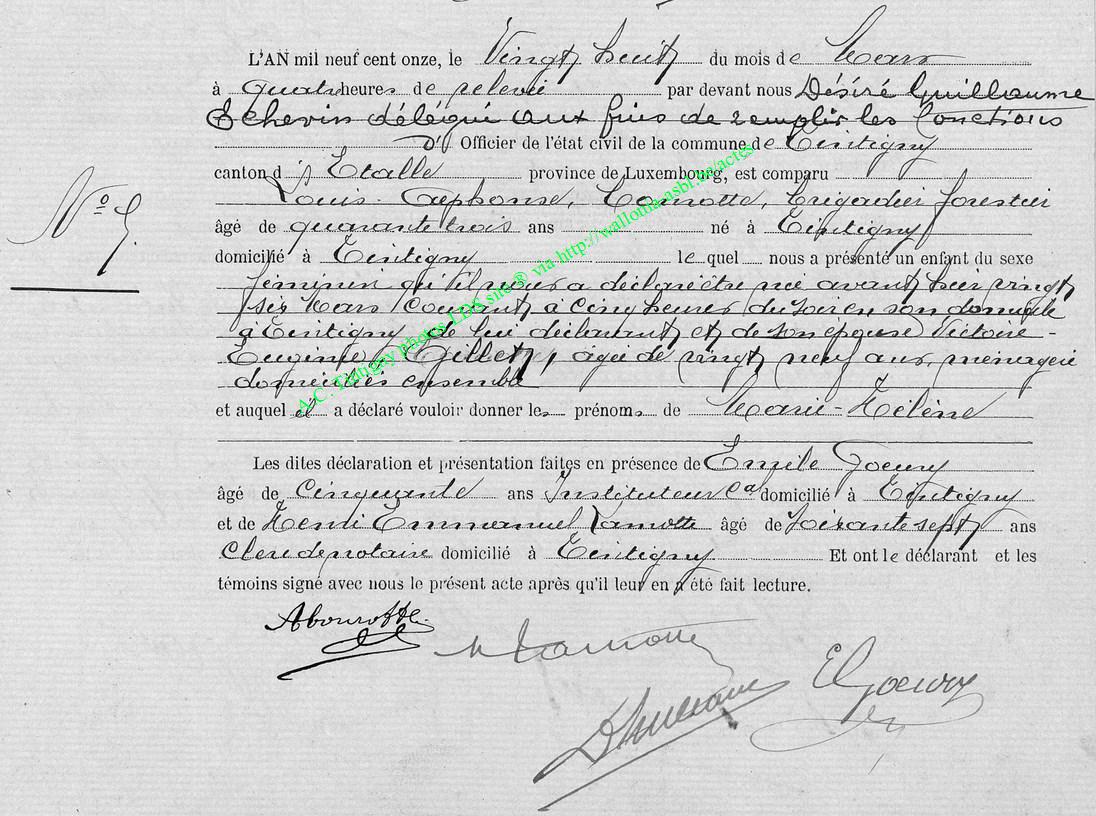 L'AN mil neuf cent onze, le Vingt huit du mois de Mars
à quatre heures de relevée par devant nous Désiré Guillaume
Echevin délégué aux fins de remplir les fonctions
d' Officier de l'état civil de la commune de Tintigny
canton d' Etalle province de Luxembourg, est comparu
Louis Alphonse, brigadier forestier
âgé de quarante trois ans né à Tintigny
domicilié à Tintigny le quel nous a présenté un enfant du sexe
féminin qu'il nous a déclaré être né avant hier vingt
six Mars courant à cinq heures du soir en son domicile
à Tintigny de lui déclarant et de son epouse Victoire-
Eugénie Gillet, agée de vingt neuf ans, ménagère
domiciliés ensemble
et auquel il a déclaré vouloir donner les prénoms de Marie-Hélène
Les dites déclaration et présentation faites en présence de Emile Goeury
âgé de Cinquante ans Instituteur domicilié à Tintigny
et de Henri Emmanuel Lamotte âgé de soixante sept ans
Clerc de notaire domicilié à Tintigny Et ont le déclarant et les
témoins signé avec nous le présent acte après qu'il leur en a été fait lecture.
N° 9.
H Lamotte
E Goeury
D Guillaume
A.C. Tintigny photos LDS site ® via http://wallonia-asbl.be/actes